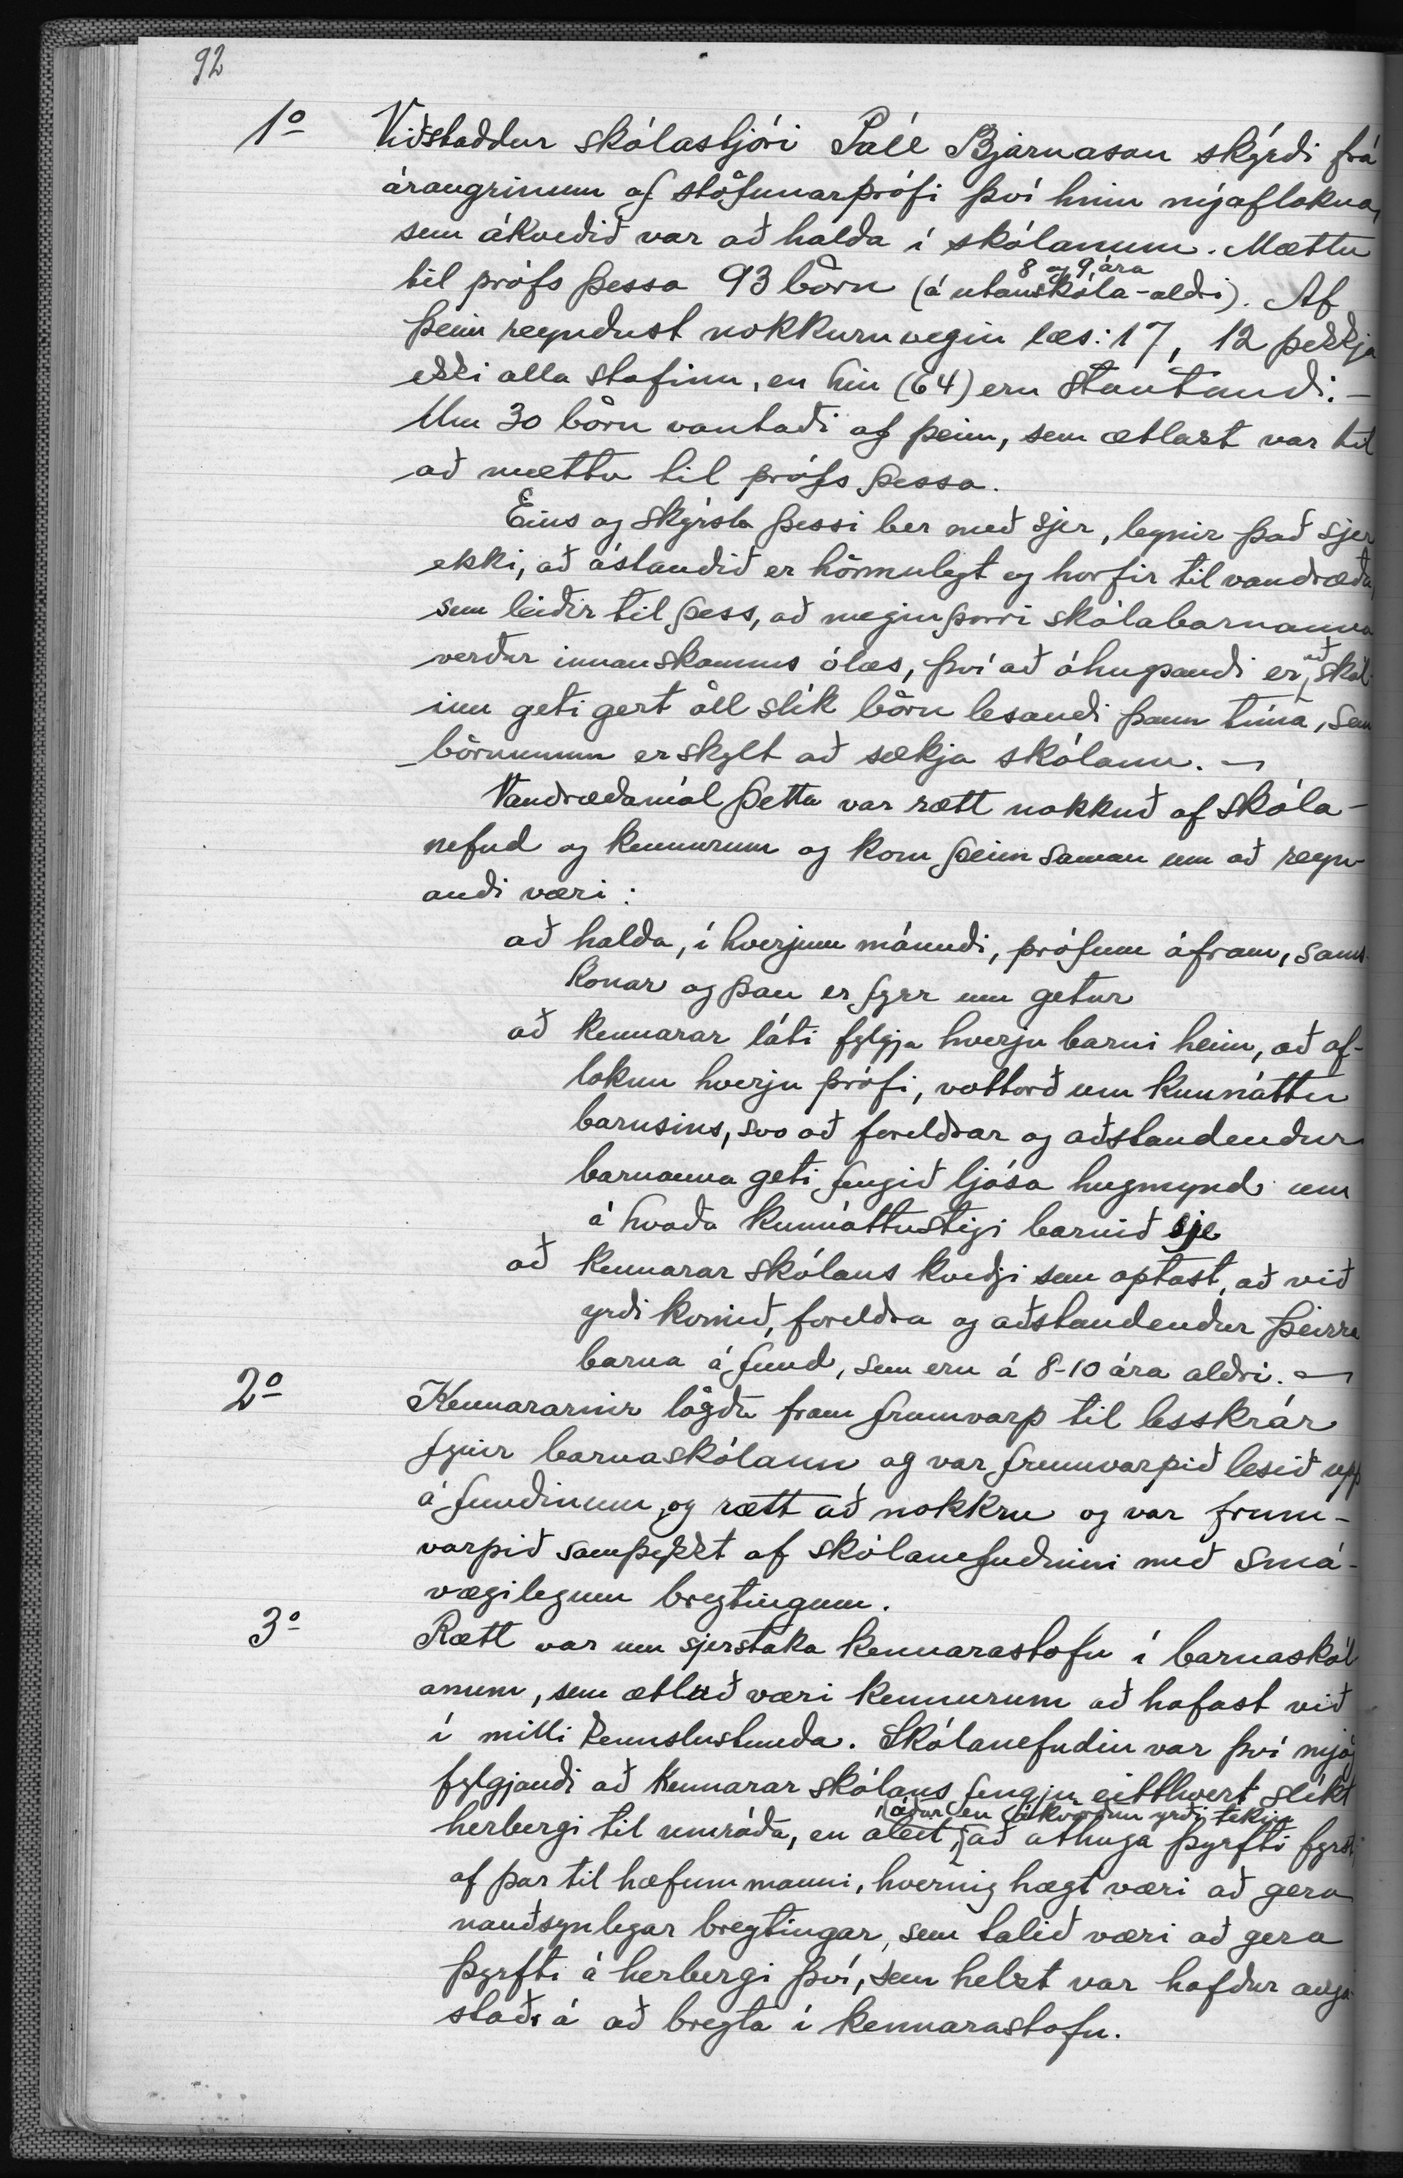 92
1º Viðstaddur skólastjóri Páll Bjarnason skýrði frá
árangrinum af stöfunarprófi því hinu nýafstokna,
sem ákveðið var að halda í skólanum. Mættu
8 og 9 ára
til prófs þessa 93 börn (á utanskóla-aldri). Af
þeim reyndust nokkurn vegin læs: 17, 12 þekkja
ekki alla stafina, en hin (64) eru stautandi. –
Um 30 börn vantaði af þeim, sem ætlast var til
að mættu til prófs þessa.
Eins og skýrsla þessi ber með sjer, leynir það sjer
ekki, að ástandið er hörmulegt og horfir til vandræða,
sem leiðir til þess, að meginþorri skólabarnanna
að
verður innanskamms ólæs, því að óhugsandi er, skól-
inn geti gert öll slík börn lesandi þann tíma, sem
börnunum er skylt að sækja skólann. –
Vandræðamál þetta var rætt nokkuð af skóla-
nefnd og kennurum og kom þeim saman um að reyn-
andi væri:
að halda, í hverjum mánuði, prófum áfram, sams-
konar og þau er fyrr um getur
að kennarar láti fylgja hverju barni heim, að af-
loknu hverju prófi, vottorð um kunnáttu
barnsins, svo að foreldrar og aðstandendur
barnanna geti fengið ljósa hugmynd um
á hvaða kunnáttustigi barnið sje
að kennarar skólans kveðji sem optast, að við
yrði komið, foreldra og aðstandendur þeirra
barna á fund, sem eru á 8-10 ára aldri. –
2º Kennararnir lögðu fram frumvarp til lesskrár
fyrir barnaskólann og var frumvarpið lesið upp
á fundinum, og rætt að nokkru og var frum-
varpið samþykkt af skólanefndinni með smá-
vægilegum breytingum.
3º Rætt var um sjerstaka kennarastofu í barnaskól
anum, sem ætluð væri kennurum að hafast við
í milli kennslustunda. Skólanefndin var því mjög
fylgjandi að kennarar skólans fengju eitthvert slíkt
áður en ákvörðun yrði tekin
herbergi til umráða, en áleit, að athuga þyrfti fyrst,
af þar til hæfum manni, hvernig hægt væri að gera
nauðsynlegar breytingar, sem talið væri að gera
þyrfti á herbergi því, sem helzt var hafður auga-
stað á að breyta í kennarastofu.